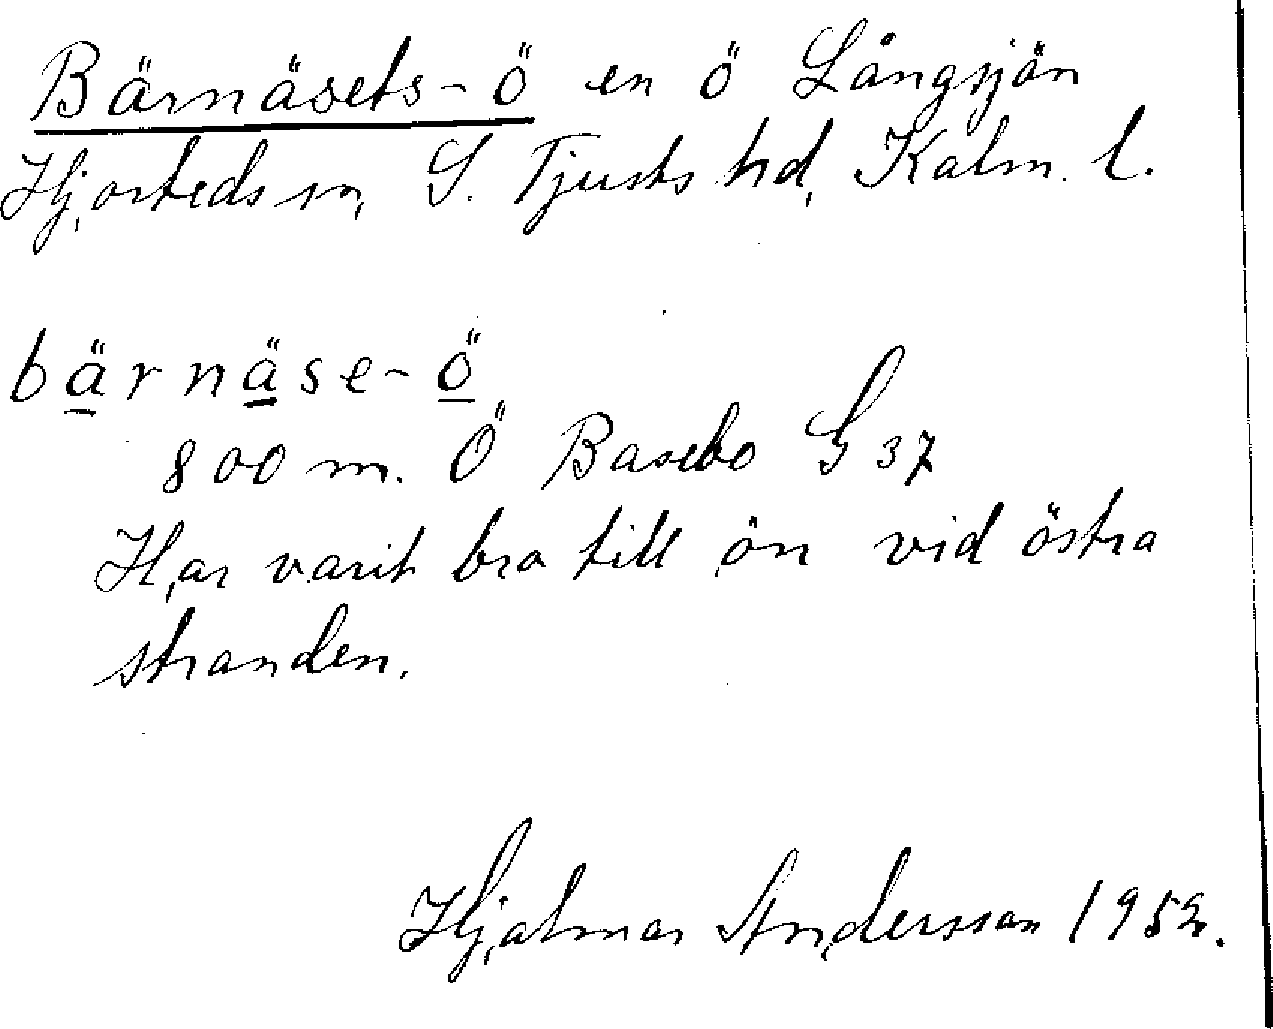 Bärnäsets-ö en ö Långsjön
Hjorteds sn, S. Tjusts hd, Kalm. l.
bärnäse-ö
800 m. Ö Basebo G 37
Har varit bro till ön vid östra
stranden.
Hjalmar Andersson 1952.